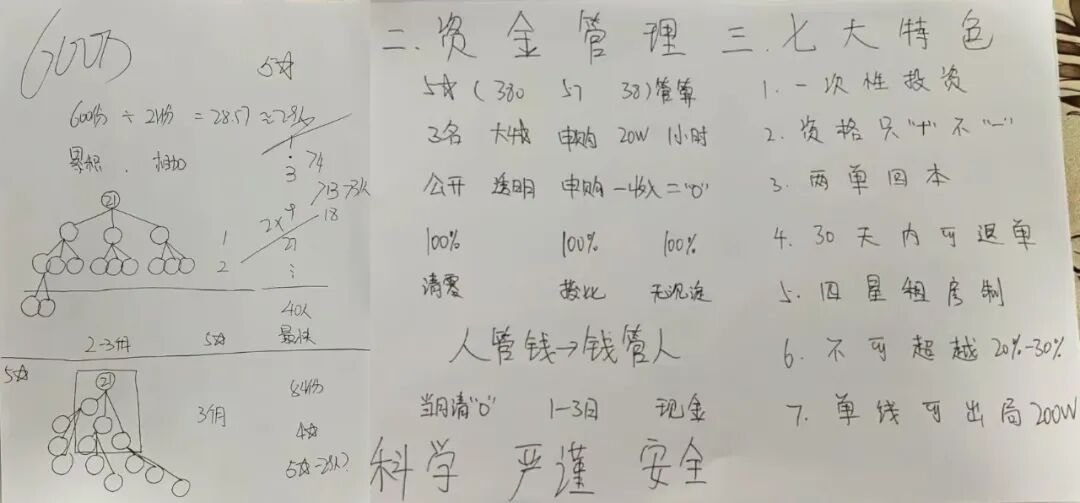 600份
5☆
600份 ÷ 21份 = 28.57 ≈ 29人
累积 . 相加
1
3 >4
9 >13 —
2× 18
27
⋮
21
1
2
40人
最快
2-3个月 5☆
5☆
21
84份
3个月
4☆
5☆-29人?
二.资金管理
5☆(380 57 38)管算
3名 大线 申购 20W 1小时
公开 透明 申购-收入="0"
100% 100% 100%
清零 拨比 无沉淀
人管钱→钱管人
当月清"0" 1-3日 现金
科学 严谨 安全
三.七大特色
1.一次性投资
2.资格只"+"不"-"
3.两单回本
4.30天内可退单
5.四星租房制
6.不可超越20%-30%
7.单线可出局200W